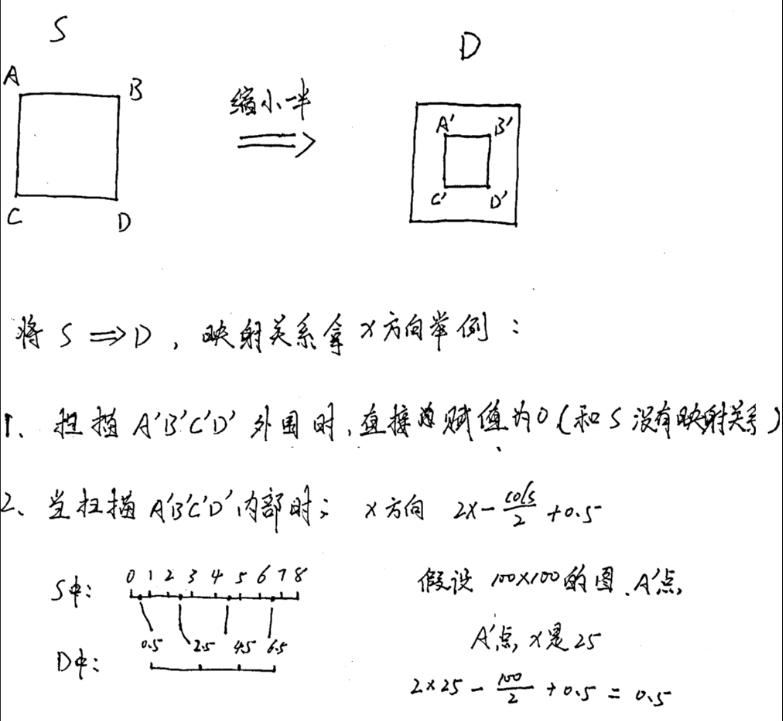 S
D
A
B
缩小一半
A'
B'
C'
D'
C
D
将 S ⇒ D , 映射关系拿 x方向举例 :
1、扫描 A'B'C'D' 外围时,直接赋值为0 (和 S 没有映射关系)
2、当扫描 A'B'C'D' 内部时: x方向 2x - cols/2 + 0.5
S中: 0 1 2 3 4 5 6 7 8
假设 100×100 的图、A'点,
0.5 2.5 4.5 6.5
A'点, x是25
D中:
2×25 - 100/2 + 0.5 = 0.5